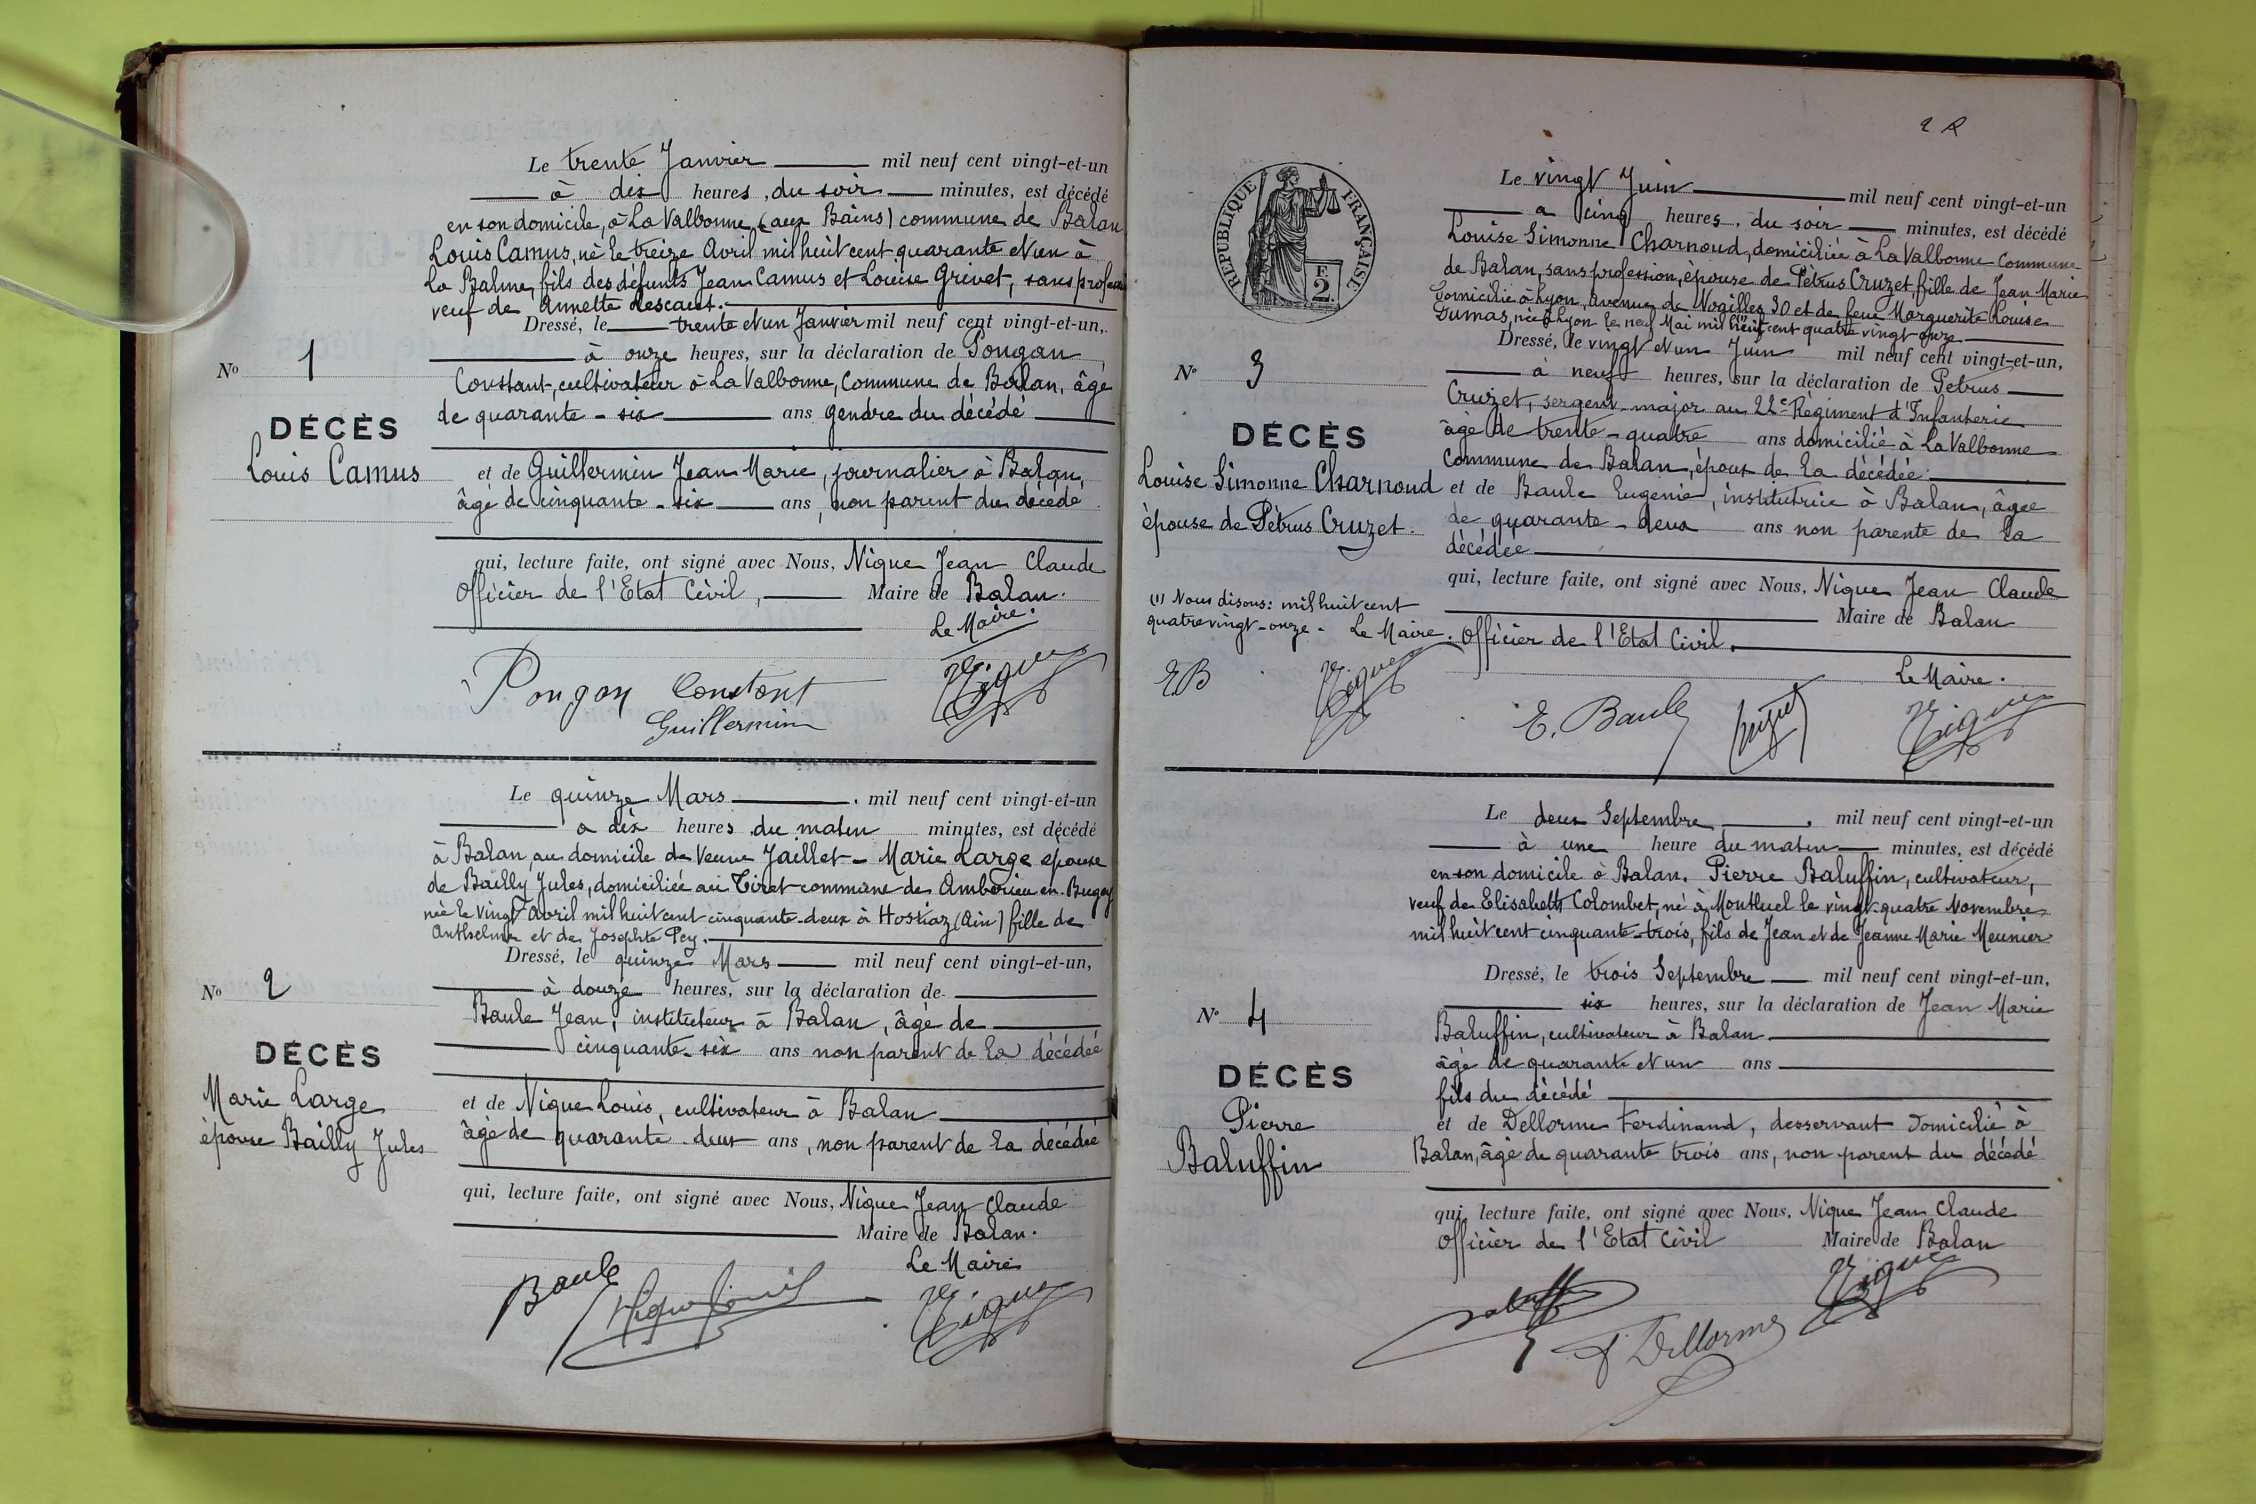 Le trente Janvier mil neuf cent vingt-et-un
à dix heures, du soir minutes, est décédé
en son domicile, à La Valbonne, (aux Bains) commune de Balan
Louis Camus, né le treize Avril mil huit cent quarante et un à
La Balme, fils des défunts Jean Camus et Louise Grivet, sans profession
veuf de Annette Descaut.
Dressé, le trente et un Janvier mil neuf cent vingt-et-un,
à onze heures, sur la déclaration de Pougan
Constant, cultivateur à La Valbonne, Commune de Balan, âgé
de quarante-six ans gendre du décédé
No 1
DÉCÈS
Louis Camus
et de Guillermin Jean Marie, journalier à Balan,
âgé de cinquante-six ans, non parent du décédé
qui, lecture faite, ont signé avec Nous, Nique Jean Claude
Officier de l'Etat Civil, Maire de Balan.
Le Maire.
Pougan Constant
Guillermin
Nique
Le quinze Mars mil neuf cent vingt-et-un
à dix heures du matin minutes, est décédé
à Balan, au domicile de Veuve Jaillet - Marie Large épouse
de Bailly Jules, domiciliée au Tiret commune de Ambérieu en Bugey
née le vingt Avril mil huit cent cinquante-deux à Hostiaz (Ain) fille de
Anthelme et de Josephte Pey.
Dressé, le quinze Mars mil neuf cent vingt-et-un,
à douze heures, sur la déclaration de
Baule Jean, instituteur à Balan, âgé de
cinquante-six ans non parent de la décédée
No 2
DÉCÈS
Marie Large
épouse Bailly Jules
et de Nique Louis, cultivateur à Balan
âgé de quarante-deux ans, non parent de la décédée
qui, lecture faite, ont signé avec Nous, Nique Jean Claude
Maire de Balan.
Le Maire
Baule
Nique Louis
Nique
2 R
RÉPUBLIQUE FRANÇAISE
F.
2
Le vingt Juin mil neuf cent vingt-et-un
à cinq heures, du soir minutes, est décédé
Louise Simonne Charnoud, domiciliée à La Valbonne Commune
de Balan, sans profession, épouse de Pétrus Cruzet, fille de Jean Marie
domicilié à Lyon, Avenue de Nogilles 30 et de feue Marguerite Louise
Dumas, née à Lyon le neuf Mai mil huit cent quatre vingt onze
Dressé, le vingt et un Juin mil neuf cent vingt-et-un,
à neuf heures, sur la déclaration de Petrus
Cruzet, sergent-major au 22e Régiment d'Infanterie
âgé de trente-quatre ans domicilié à La Valbonne
Commune de Balan, époux de la décédée
No 3
DÉCÈS
Louise Simonne Charnoud
épouse de Pétrus Cruzet.
et de Baule Eugenie, institutrice à Balan, âgée
de quarante-deux ans non parente de la
décédée
qui, lecture faite, ont signé avec Nous, Nique Jean Claude
Maire de Balan
Officier de l'Etat Civil.
Le Maire.
(1) Nous disons: mil huit cent
quatre vingt-onze - Le Maire.
EB
Nique
E. Baule
Cruzet
Nique
Le deux Septembre mil neuf cent vingt-et-un
à une heure du matin minutes, est décédé
en son domicile à Balan. Pierre Baluffin, cultivateur,
veuf de Elisabeth Colombet, né à Montluel le vingt-quatre Novembre
mil huit cent cinquante-trois, fils de Jean et de Jeanne Marie Meunier
Dressé, le trois Septembre mil neuf cent vingt-et-un,
six heures, sur la déclaration de Jean Marie
Baluffin, cultivateur à Balan
âgé de quarante et un ans
fils du décédé
No 4
DÉCÈS
Pierre
Baluffin
et de Dellorme Ferdinand, desservant domicilié à
Balan, âgé de quarante trois ans, non parent du décédé
qui, lecture faite, ont signé avec Nous, Nique Jean Claude
Officier de l'Etat Civil Maire de Balan
Nique
Baluffin
F. Dellorme